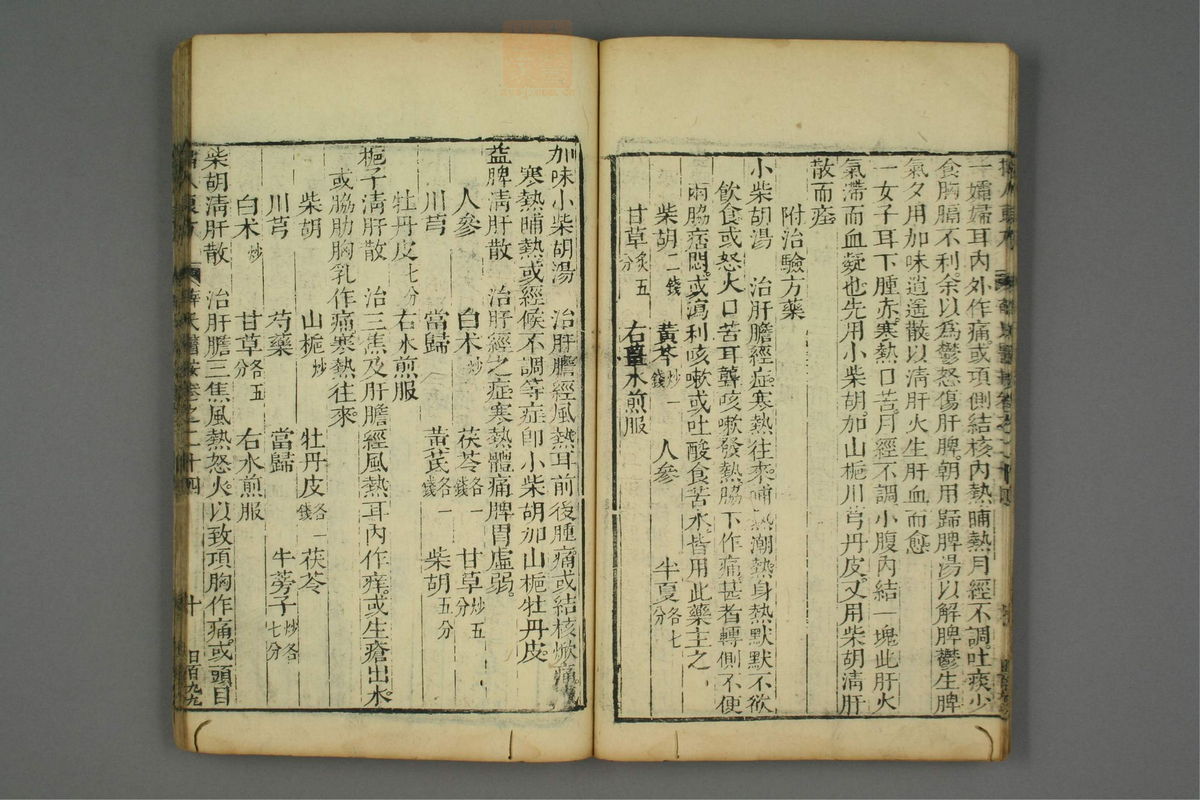 一孀婦耳內外作痛或項側結核內熱晡熱月經不調吐痰少
食胸膈不利余以爲鬱怒傷肝脾朝用歸脾湯以解脾鬱生脾
氣夕用加味逍遙散以清肝火生肝血而愈
一女子耳下腫赤寒熱口苦月經不調小腹內結一塊此肝火
氣滯而血凝也先用小柴胡加山梔川芎丹皮又用柴胡清肝
散而痊
附治驗方藥
小柴胡湯 治肝膽經症寒熱往來晡熱潮熱身熱默默不欲
飲食或怒火口苦耳聾咳嗽發熱脇下作痛甚者轉側不便
兩脇痞悶或瀉利咳嗽或吐酸食苦水皆用此藥主之
柴胡二錢 黃芩炒一錢 人參 半夏各七分
甘草炙五分 右薑水煎服
加味小柴胡湯 治肝膽經風熱耳前後腫痛或結核焮痛
寒熱晡熱或經候不調等症卽小柴胡加山梔牡丹皮
益脾清肝散 治肝經之症寒熱體痛脾胃虛弱
人參 白朮炒 茯苓各一錢 甘草炒五分
川芎 當歸 黃芪各一錢 柴胡五分
牡丹皮七分 右水煎服
梔子清肝散 治三焦及肝膽經風熱耳內作痒或生瘡出水
或脇肋胸乳作痛寒熱往來
柴胡 山梔炒 牡丹皮各一錢 茯苓
川芎 芍藥 當歸 牛蒡子炒各七分
白朮炒 甘草各五分 右水煎服
柴胡清肝散 治肝膽三焦風熱怒火以致項胸作痛或頭目
婦人良方 薛氏醫按卷之二十四 十 四百九九